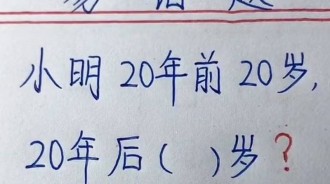 小明20年前20岁,
20年后( )岁?